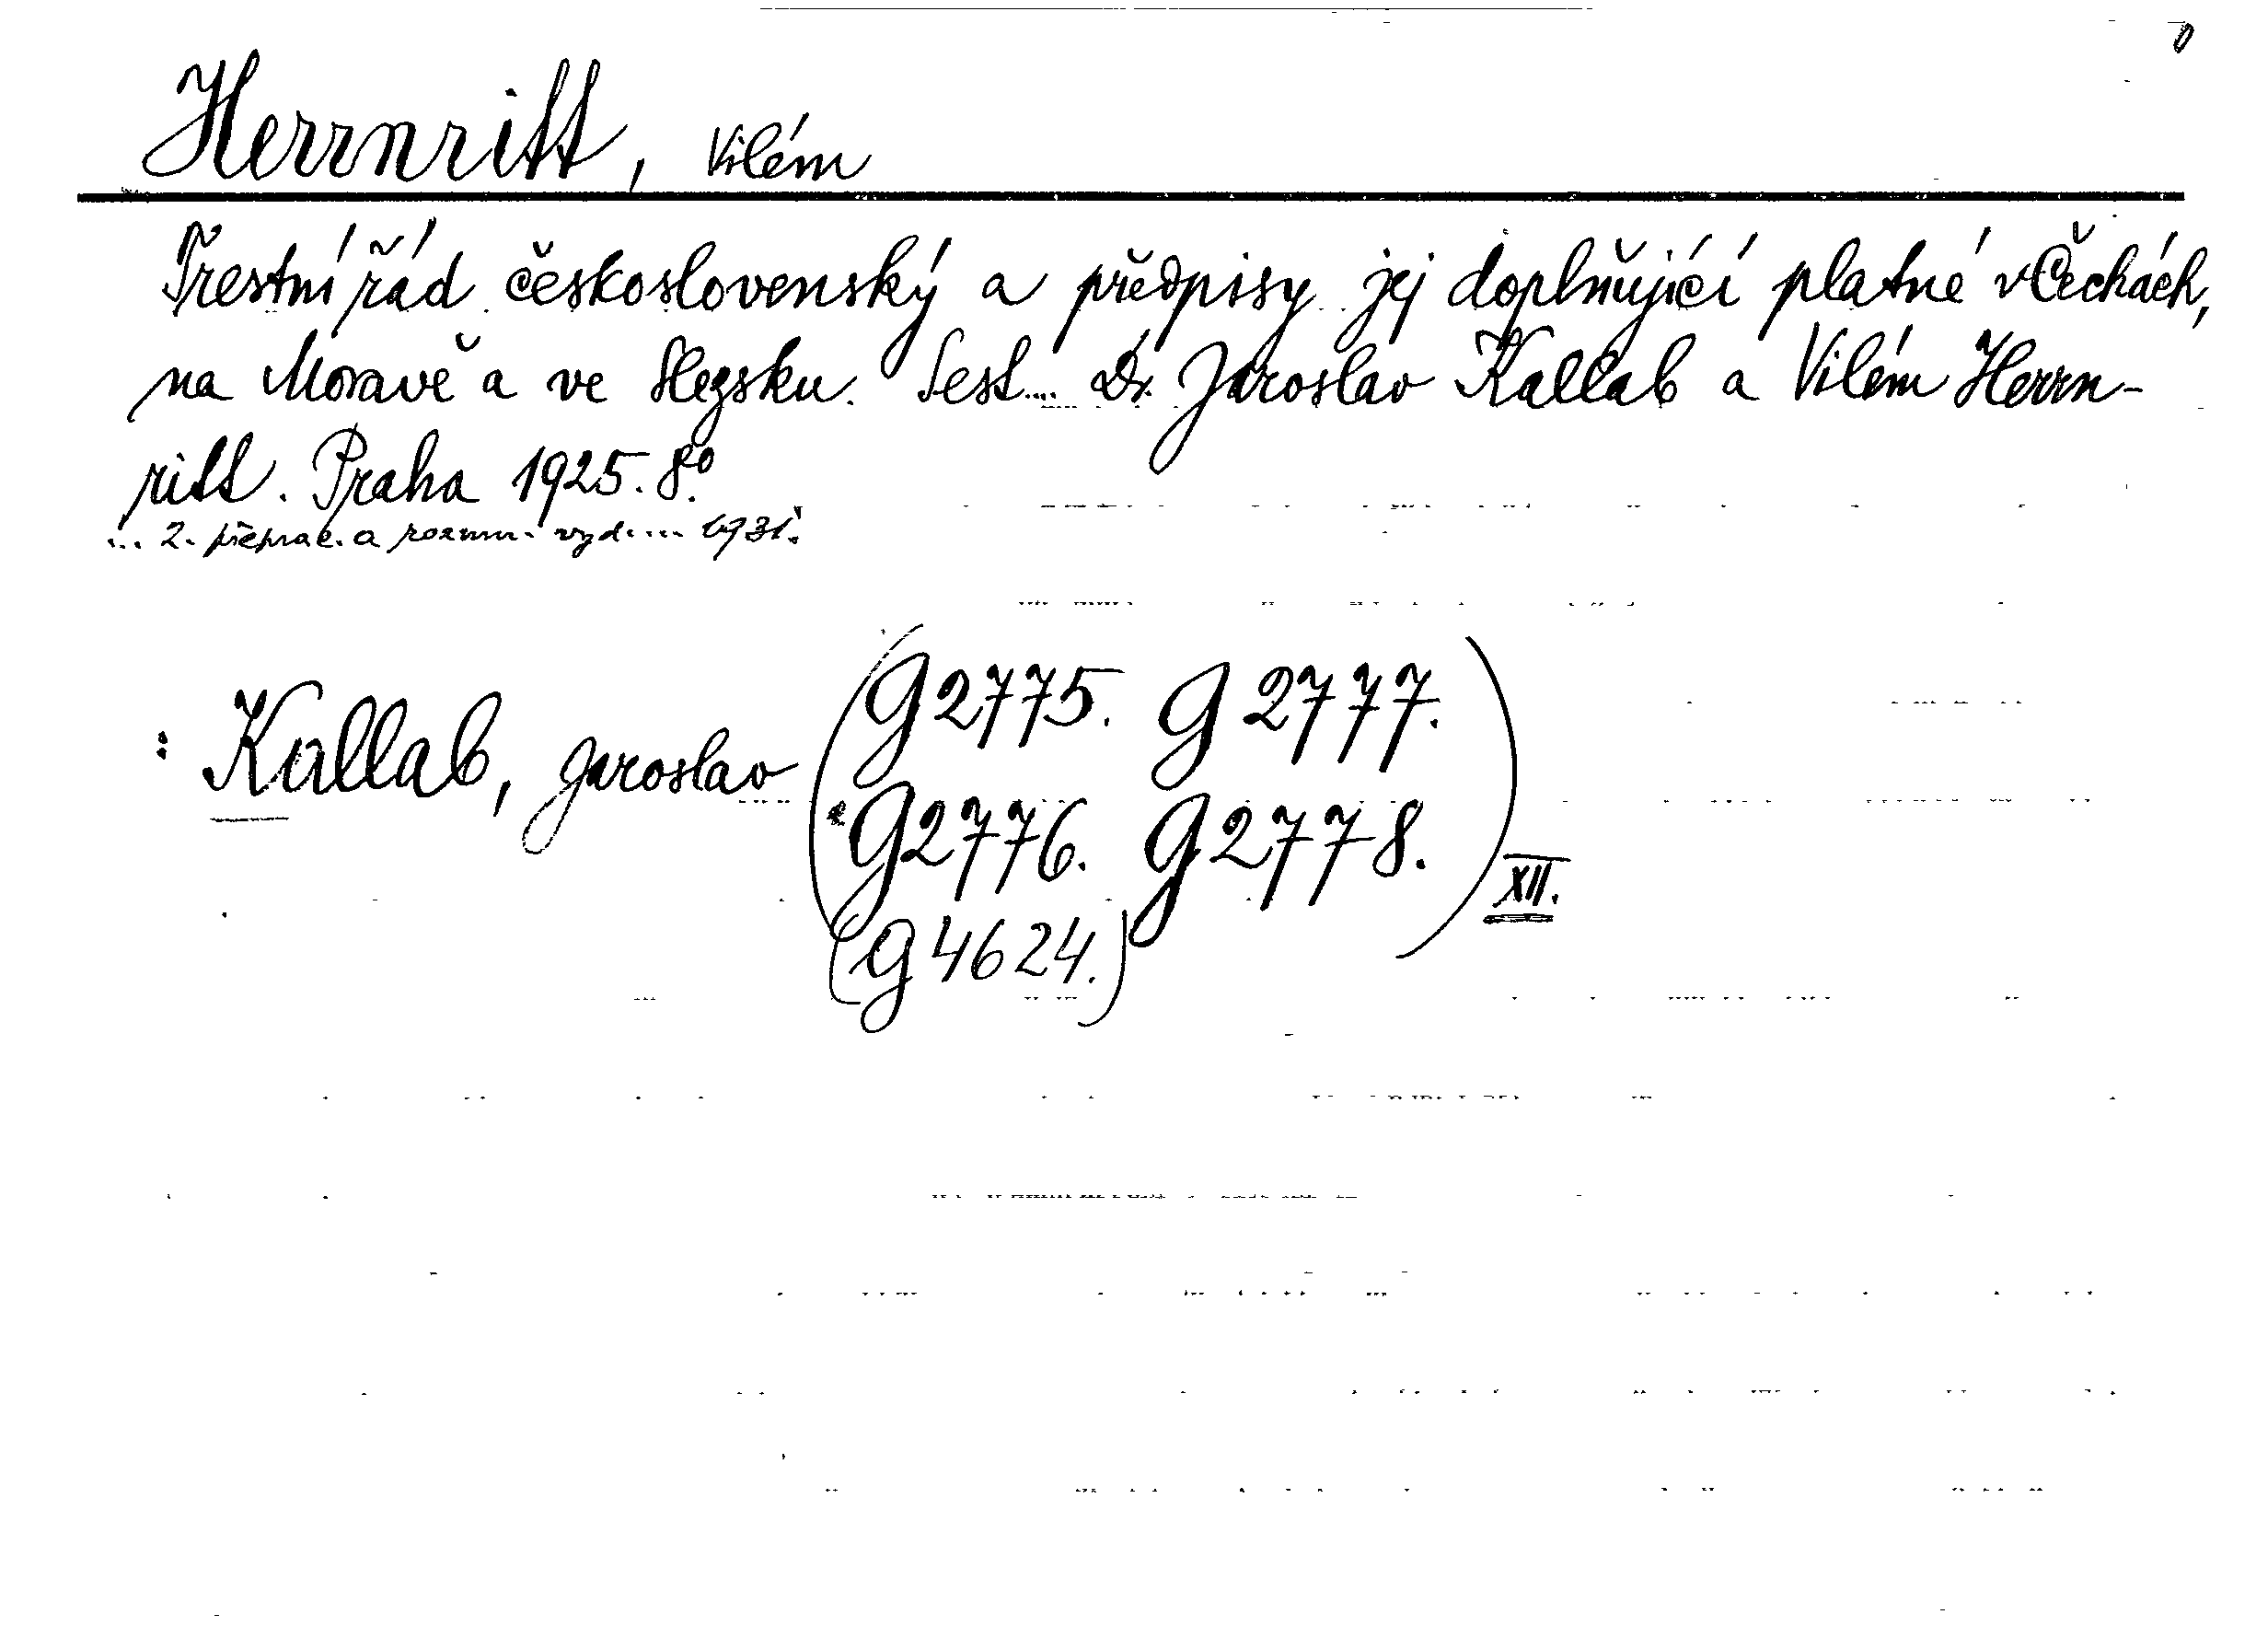 Herrnritt, Vilém
Trestní řád československý a předpisy jej doplňující platné v Čechách,
na Moravě a ve Slezsku. Sest... Dr. Jaroslav Kallab a Vilém Herrn-
ritt. Praha 1925. 8º.
... 2. přeprac. a rozmn. vyd. ... 1931.
: Kallab, Jaroslav (G 2775. G 2777.
G 2776. G 2778.) XII.
(G 4624.)